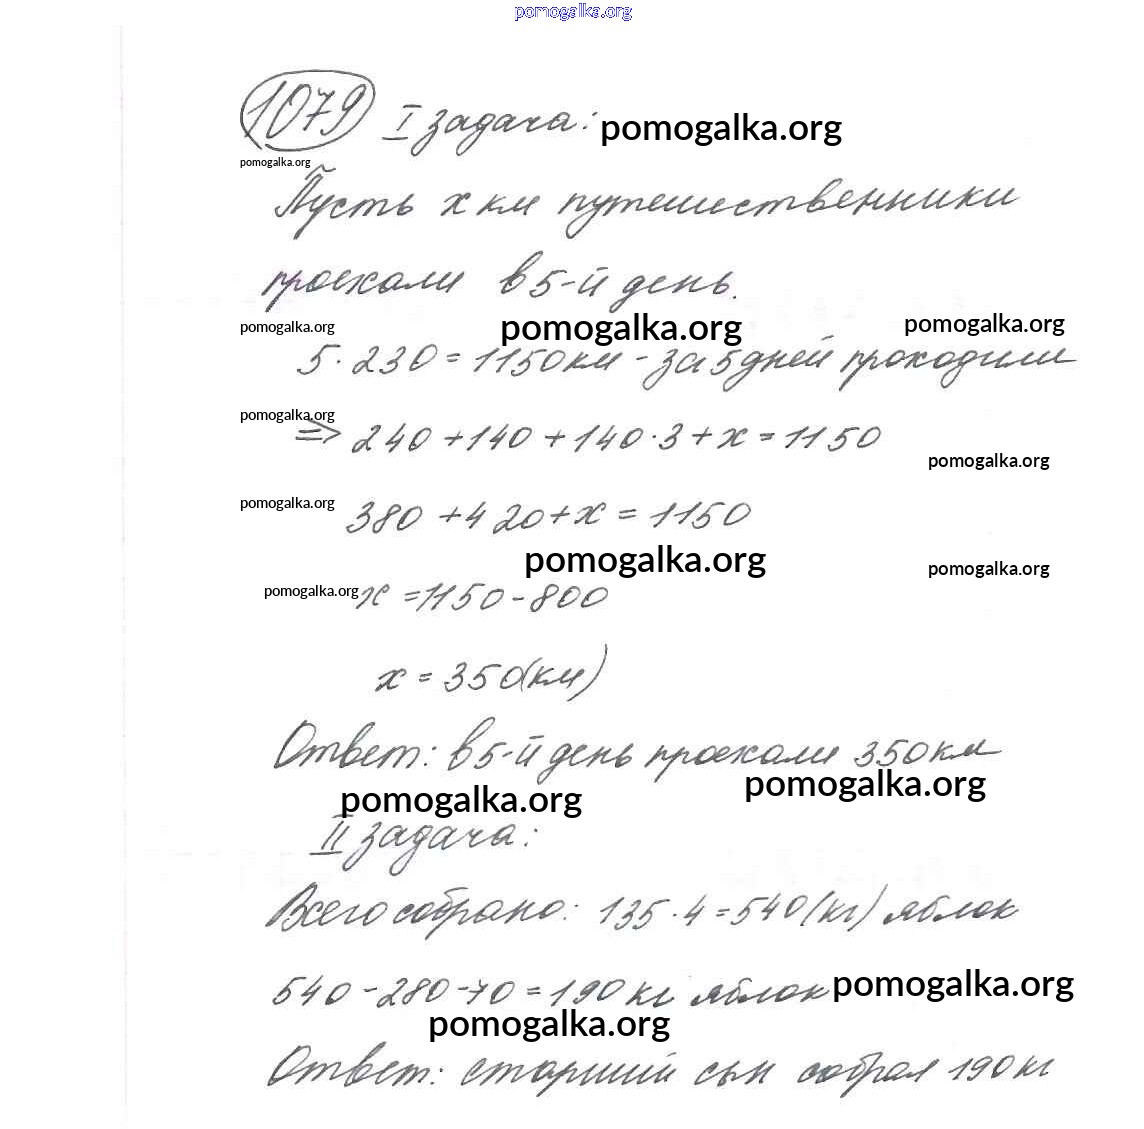 pomogalka.org
1079 I задача: pomogalka.org
pomogalka.org
Пусть x км путешественники
проехали в 5-й день.
pomogalka.org pomogalka.org pomogalka.org
5·230=1150км - за 5 дней проходили
pomogalka.org
=> 240+140+140·3+x=1150
pomogalka.org
pomogalka.org
380+420+x=1150
pomogalka.org pomogalka.org
pomogalka.org x=1150-800
x=350(км)
Ответ: в 5-й день проехали 350км
pomogalka.org pomogalka.org
II задача:
Всего собрано: 135·4=540(кг) яблок
540-280-70=190кг яблок pomogalka.org
pomogalka.org
Ответ: старший сын собрал 190кг